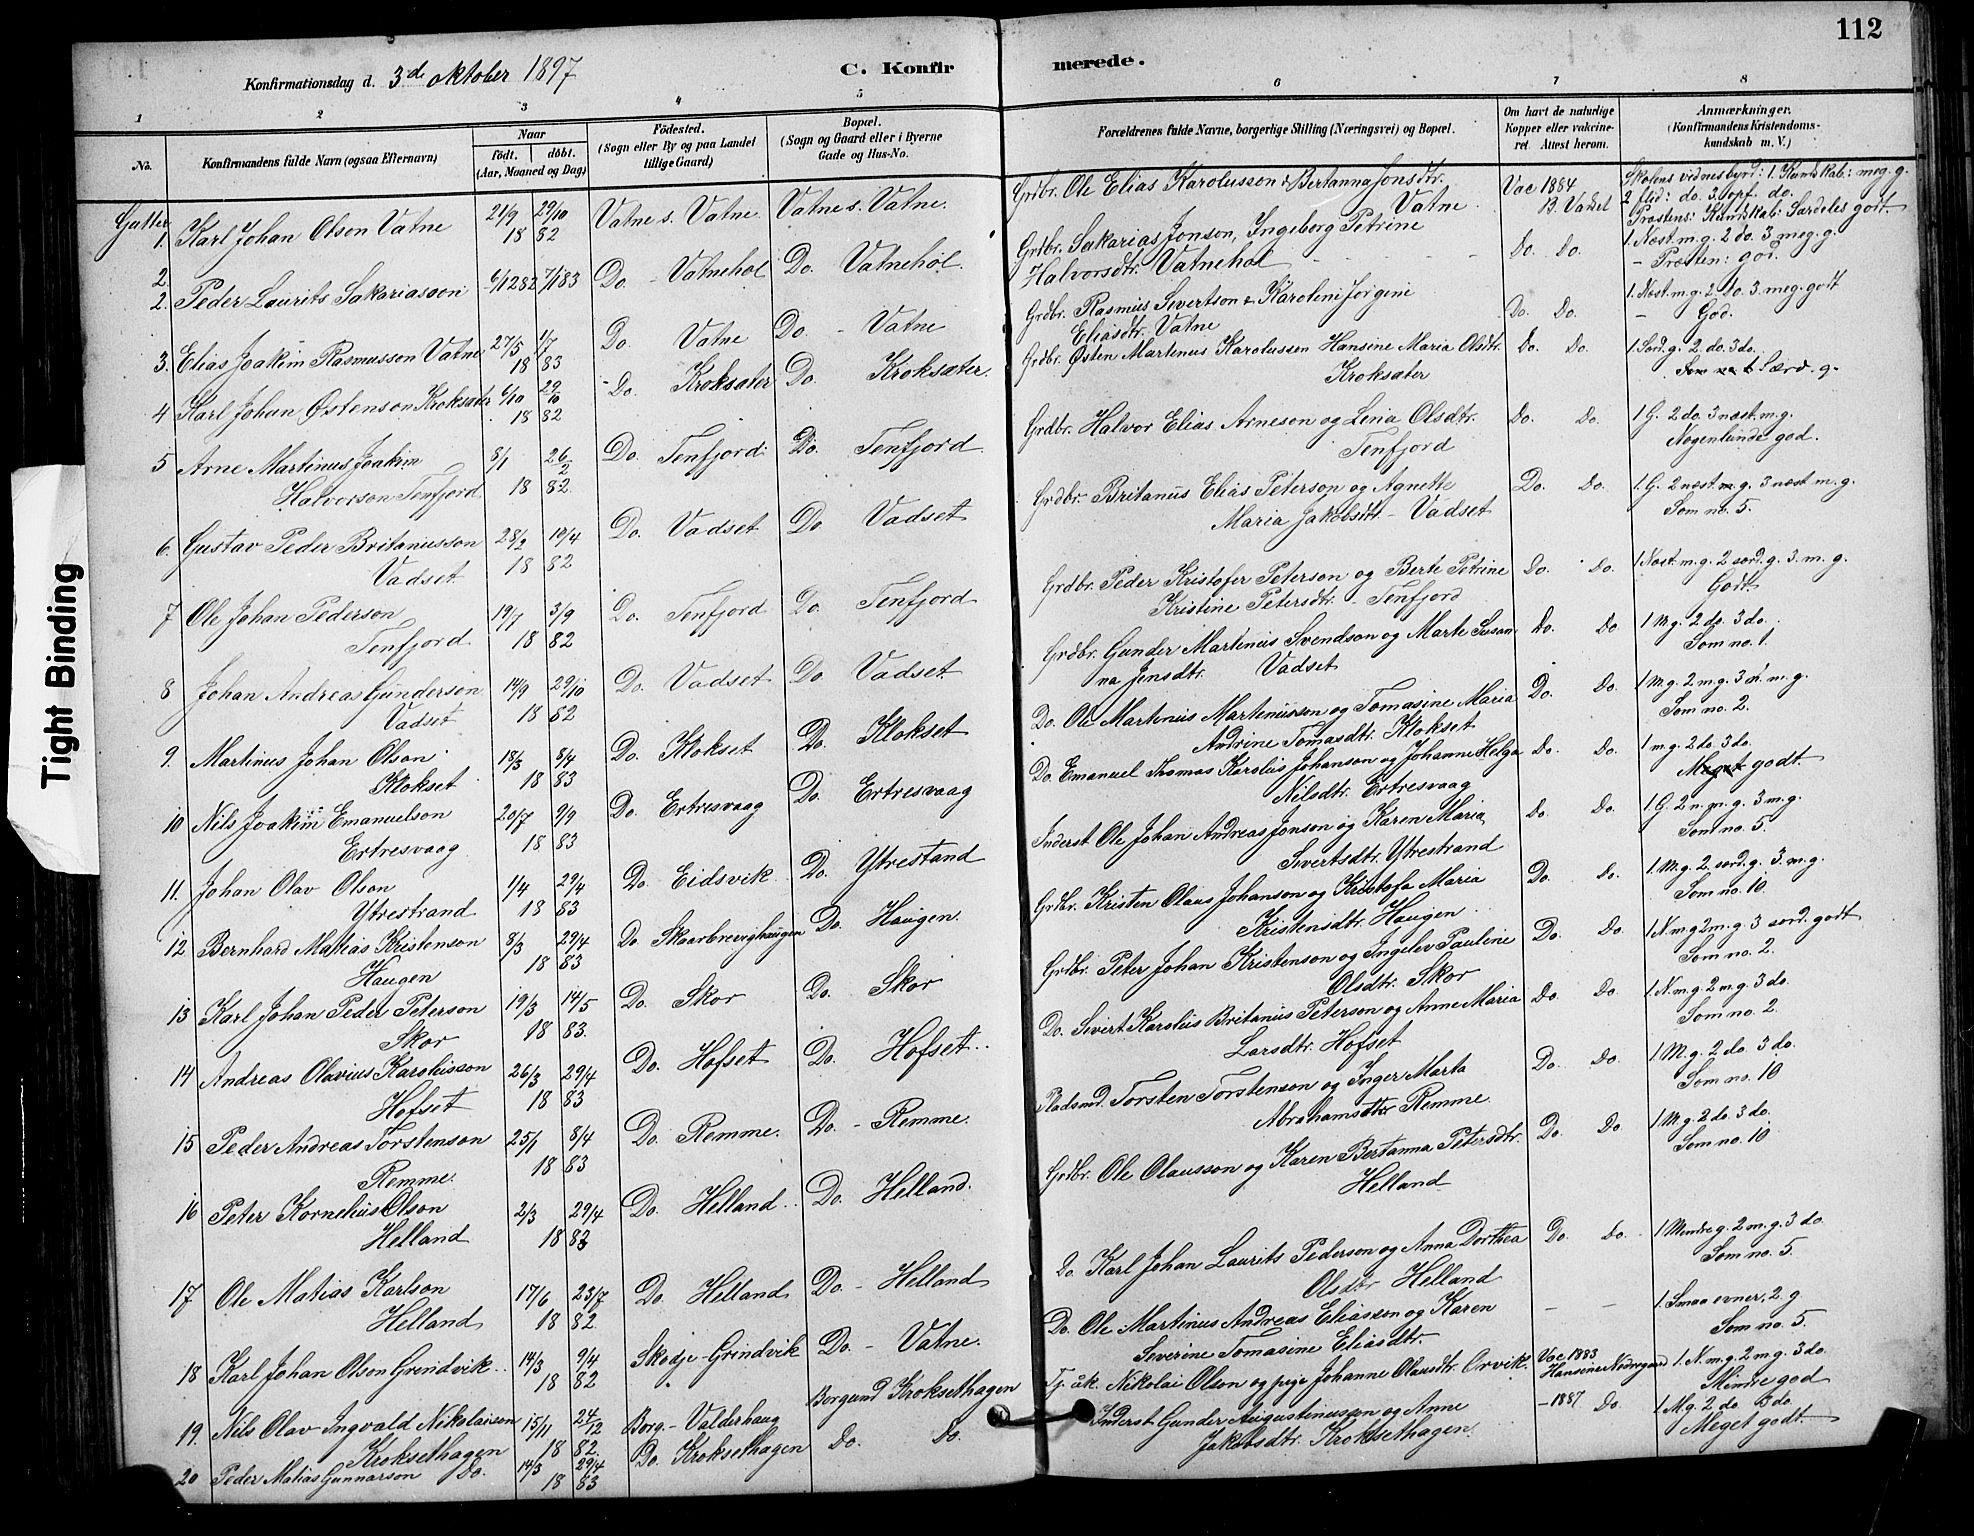 112
Konfirmationsdag d. 3d oktober 1897
C. Konfirmerede.
1 2 3 4 5 6 7 8
No.
Konfirmandens fulde Navn (ogsaa Efternavn)
Naar
födt. döbt.
(Aar, Maaned og Dag)
Födested.
(Sogn eller By og paa Landet
tillige Gaard)
Bopæl.
(Sogn og Gaard eller i Byerne
Gade og Hus-No.
Forældrenes fulde Navne, borgerlige Stilling (Næringsvei) og Bopæl.
Om havt de naturlige
Kopper eller vakcine-
ret. Attest herom.
Anmærkninger.
(Konfirmandens Kristendoms-
kundskab m. V.)
Gutter
1. Karl Johan Olson Vatne 21/9 29/10 18 82 Vatne s. Vatne Vatne s. Vatne.
Grdbr. Ole Elias Karolusson & Bertanna Jonsdtr. Vatne
Vac 1884 B. Vadset
Skolens vidnesbyrd: 1. Kundskab: meg. g.
2 flid: do. 3. opf. do.
Præstens: Kundskab: Særdeles godt.
2. Peder Laurits Sakariasson 6/12 82 7/1 83 Do. - Vatnehol Do. Vatnehol.
Grdbr. Sakarias Jonson, Ingeborg Petrine
Halvorsdtr. Vatnehol
Do. Do.
1. Næst. m. g. 2 do. 3 meg. g.
- Præsten: god.
3. Elias Joakim Rasmusson Vatne 27/5 1/7 18 83 Do. Vatne Do. - Vatne
Grdbr. Rasmus Severtson & Karoleni Jorgine
Eliasdtr. Vatne
Do. Do.
1. Næst. m. g. 2. Do. 3. meg. godt
- God.
4 Karl Johan Østenson Kroksæter 6/10 29/10 18 82 - Do. Kroksæter Do. Kroksæter.
Grdbr. Østen Martinus Karolussen Hansine Maria Olsdtr.
Kroksæter
Do. Do.
1. Særd. g. 2. do. 3 do.
Særd. g.
5 Arne Martinus Joakim
Halvorson Tenfjord 8/1 26/2 18 82. Do. Tenfjord. Do. Tenfjord.
Grdbr. Halvor Elias Arneson og Lena Olsdtr.
Tenfjord
Do. Do.
1 G. 2 do. 3 næst. m. g.
Nogenlunde god.
6. Gustav Peder Britanusson
Vadset 28/2 10/4 18 82 Do. Vadset Do Vadset
Grdbr. Britanus Elias Peterson og Agnette
Maria Jakobsdtr. - Vadset
Do. Do.
1. G. 2 næst. m. g. 3 næst m. g.
Som no. 5.
7 Ole Johan Pederson
Tenfjord 19/7 3/9 18 82 Do. Tenfjord Do. Tenfjord
Grdbr. Peder Kristofer Peterson og Berte Petrine
Kristine Petersdtr. - Tenfjord
Do. Do.
1 Næst. m. g. 2 særd. g. 3. m. g.
Godt
8 Johan Andreas Gunderson
Vadset 14/9 29/10 18 82 Do. Vadset Do Vadset
Grdbr. Gunder Martinus Svendson og Marte Susan
na Jensdtr. Vadset
Do. Do
1 M. g. 2 do. 3 do.
Som no. 1.
9. Martinus Johan Olson
Klokset 18/3 8/4 18 83 Do. Klokset Do. Klokset
Do. Ole Martinus Martinusson og Tomasine Maria
Andrine Tomasdtr. Klokset
Do. Do.
1 M. g. 2 m. g. 3 n. m. g.
Som no. 2.
10 Nils Joakim Emanuelson
Ertresvaag 20/7 9/9 18 83 Do. Ertresvaag Do. Ertresvaag
Do. Emanuel Thomas Karolus Johanson og Johanne Helga
Nilsdtr. Ertresvaag
Do. Do.
1 m. g. 2 do. 3 do.
Meget godt.
11. Johan Olav Olson
Ytrestrand 1/4 29/4 18 83 Do Eidsvik Do. Ytrestand
Inderst Ole Johan Andreas Jonson og Karen Maria
Severtsdtr. Ytrestrand
Do Do.
1. G. 2 n. m. g. 3 m. g.
Som no. 5.
12 Bernhard Matias Kristenson
Haugen 8/3 29/4 18 83 Do. Skaarbrevighaugen Do. Haugen.
Grdbr. Kristen Olaus Johanson og Kristofa Maria
Kristensdtr. Haugen
Do. Do.
1. M. g. 2. særd. g. 3. m. g.
Som no. 10.
13 Karl Johan Peder Peterson
Skor 19/3 14/5 18 83. Do. Skor Do. Skor
Grdbr. Peter Johan Kristenson og Ingelev Pauline
Olsdtr. Skor
Do. Do.
1 N. m. g 2 m. g. 3 særd. godt
Som no. 2.
14 Andreas Olavius Karolusson
Hofset 26/3 29/4 18 83 Do. Hofset Do. Hofset.
Do. Sivert Karolus Britanus Peterson og Anne Maria
Larsdtr. Hofset
Do Do.
1. N. m. g. 2 m. g. 3 do.
Som no. 2.
15 Peder Andreas Torstenson
Remme. 25/1 8/4 18 83 Do. Remme. Do. - Remme.
Pladsmd. Torsten Torstenson og Inger Marta
Abrahamsdtr Remme.
Do. Do.
1. M. g. 2 do. 3 do.
Som no. 10
16 Peter Kornelius Olson
Helland 2/3 29/4 18 83 Do. Helland Do. Helland.
Grdbr. Ole Olausson og Karen Bertanna Petersdtr.
Helland
Do. Do.
1 M. g. 2 do. 3 do.
Som no. 10.
17 Ole Matias Karlson
Helland 17/6 23/7 18 82. Do. Helland Do. - Helland
Do. Karl Johan Laurits Pederson og Anna Dorthea
Olsdtr Helland
Do. Do.
1 Mindre g. 2 m. g. 3 do.
Som no. 5.
18 Karl Johan Olson Grindvik 14/3 9/4 18 82 Skodje - Grindvik Do. - Vatne.
Do. Ole Martinus Andreas Eliasson og Karen
Severine Tomasine Eliasdtr.
- -
1. Smaa evner, 2 g.
Som no. 5.
19. Nils Olav Ingvald Nikolaison
Kroksethagen 15/11 24/12 18 82. Borg. - Valderhaug Borgund Kroksethagen
Tj. uk. Nikolai Olson og pige Johanne Olausdtr. Orvik.
Vac 1883
Hansine Nørregaard
1. N. m. g. 2 m. g. 3 do.
Mindre god
20 Peder Matias Gunnarson Do. 14/3 29/4 18 83 Do. Kroksethagen Do. Do.
Inderst Gunder Augustinusson og Anne
Jakobsdtr. Kroksethagen.
- 1887 Do.
1 M. g. 2 do. 3 do.
Meget godt.
Tight Binding